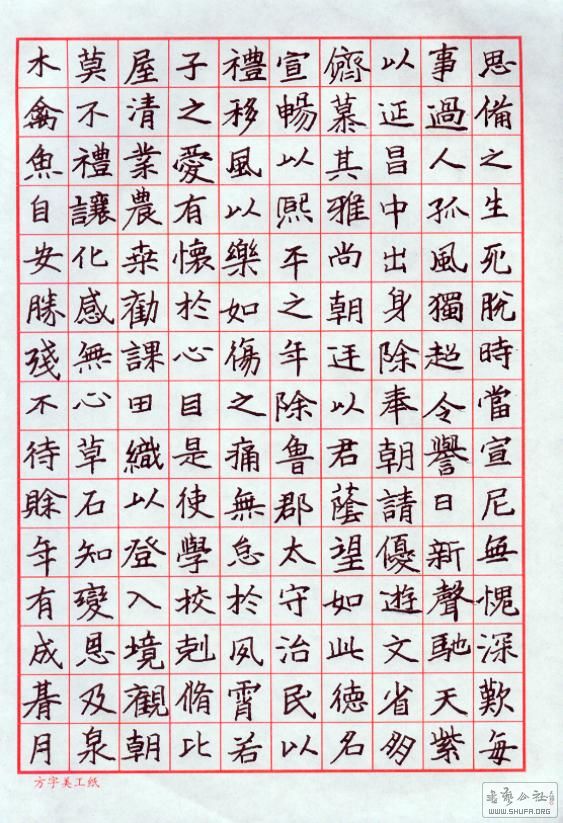 思備之生死脫時當宣尼無愧深歎每
事過人孤風獨超令譽日新聲馳天紫
以延昌中出身除奉朝請優遊文省朋
儕慕其雅尚朝廷以君蔭望如此德名
宣暢以熙平之年除魯郡太守治民以
禮移風以樂如傷之痛無怠於夙霄若
子之愛有懷於心目是使學校剋脩比
屋清業農桒勸課田織以登入境觀朝
莫不禮讓化感無心草石知變恩及泉
木禽魚自安勝殘不待賒年有成朞月
方字美工纸
书法公社
WWW.SHUFA.ORG